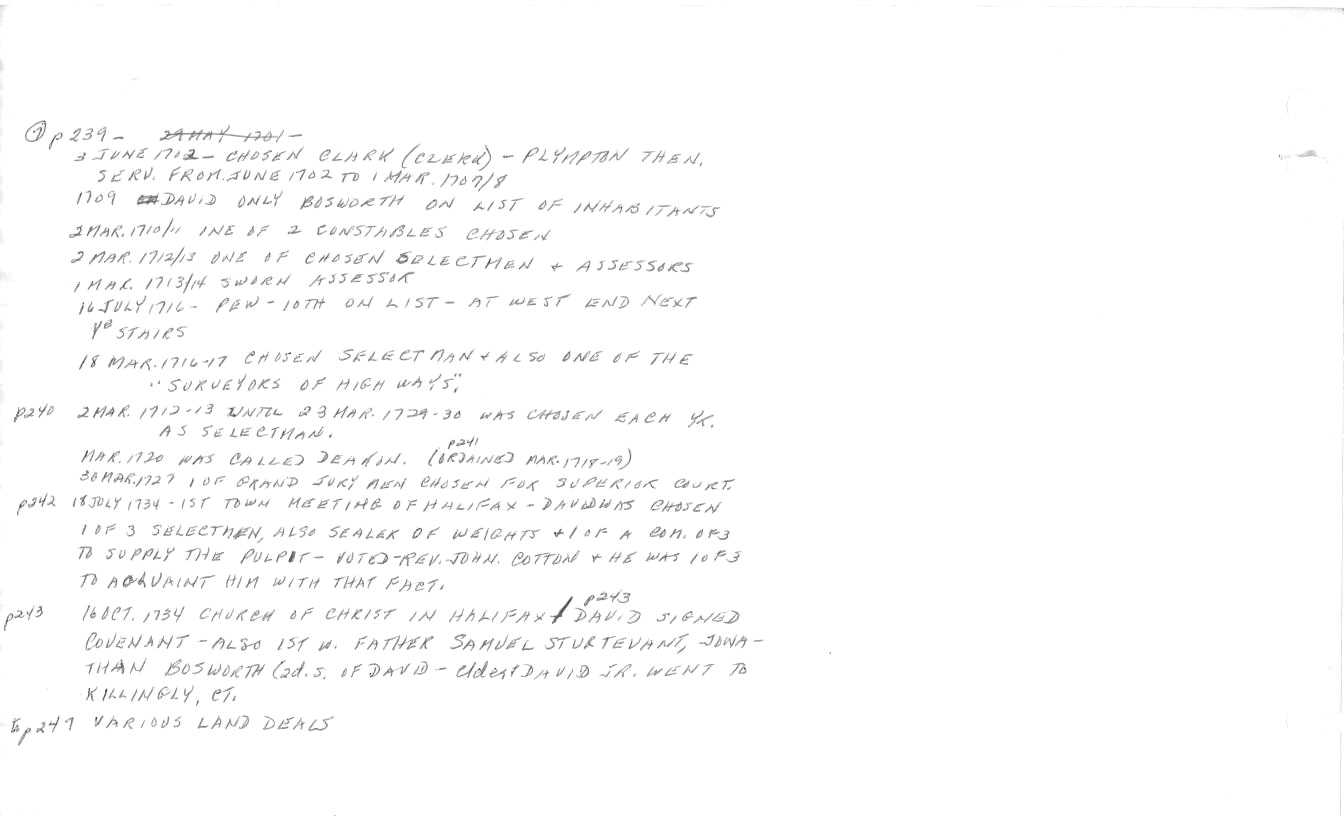 ① p 239 - 29 MAY 1701 -
3 JUNE 1702 - CHOSEN CLARK (CLERK) - PLYMPTON THEN.
SERV. FROM JUNE 1702 TO 1 MAR. 1707/8
1709 DAVID ONLY BOSWORTH ON LIST OF INHABITANTS
2 MAR. 1710/11 INE OF 2 CONSTABLES CHOSEN
2 MAR. 1712/13 ONE OF CHOSEN SELECTMEN + ASSESSORS
1 MAR. 1713/14 SWORN ASSESSOR
16 JULY 1716 - PEW - 10TH ON LIST - AT WEST END NEXT
Ye STAIRS
18 MAR. 1716-17 CHOSEN SELECTMAN + ALSO ONE OF THE
"SURVEYORS OF HIGH WAYS".
p240 2 MAR. 1712-13 UNTIL 23 MAR. 1729-30 WAS CHOSEN EACH YR.
AS SELECTMAN.
p241
MAR. 1720 WAS CALLED DEAKON. (ORDAINED MAR. 1718-19)
30 MAR. 1727 1 OF GRAND JURY MEN CHOSEN FOR SUPERIOR COURT.
p242 18 JULY 1734 - 1ST TOWN MEETING OF HALIFAX - DAVID WAS CHOSEN
1 OF 3 SELECTMEN, ALSO SEALER OF WEIGHTS + 1 OF A COM. OF 3
TO SUPPLY THE PULPIT - VOTED - REV. JOHN. COTTON + HE WAS 1 OF 3
TO ACQUAINT HIM WITH THAT FACT.
p243
p243 16 OCT. 1734 CHURCH OF CHRIST IN HALIFAX + DAVID SIGNED
COVENANT - ALSO 1ST W. FATHER SAMUEL STURTEVANT, JONA-
THAN BOSWORTH (2d. S. OF DAVID - eldest DAVID JR. WENT TO
KILLINGLY, CT.
to p247 VARIOUS LAND DEALS